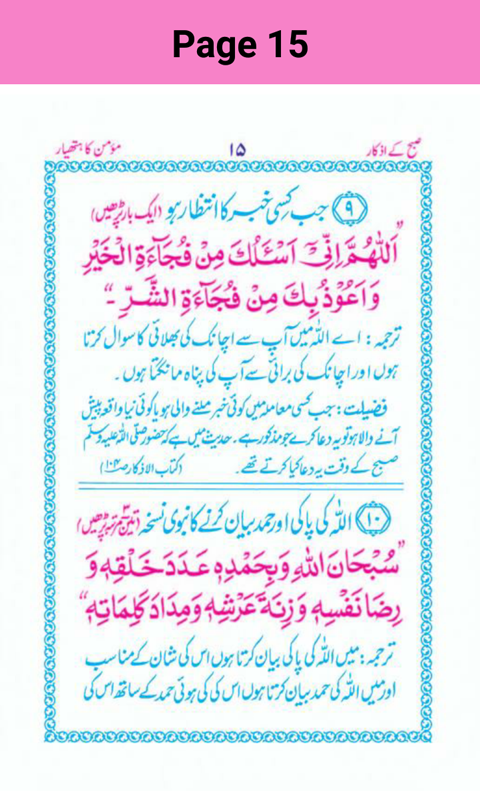 Page 15
صبح کے اذکار ۱۵ مؤمن کا ہتھیار
۹ جب کسی خبر کا انتظار ہو (ایک بار پڑھیں)
"اَللّٰهُمَّ اِنِّیْۤ اَسْئَلُكَ مِنْ فُجَآءَةِ الْخَیْرِ
وَ اَعُوْذُ بِكَ مِنْ فُجَآءَةِ الشَّرِّ ۔"
ترجمہ : اے اللہ میں آپ سے اچانک کی بھلائی کا سوال کرتا
ہوں اور اچانک کی برائی سے آپ کی پناہ مانگتا ہوں ۔
فضیلت : جب کسی معاملہ میں کوئی خبر ملنے والی ہو یا کوئی نیا واقعہ پیش
آنے والا ہو تو یہ دعا کرے جو مذکور ہے۔ حدیث میں ہے کہ حضور صلی اللہ علیہ وسلم
صبح کے وقت یہ دعا کیا کرتے تھے۔ (کتاب الاذکار ص۱۰۴)
۱۰ اللہ کی پاکی اور حمد بیان کرنے کا نبوی نسخہ (تین مرتبہ پڑھیں)
"سُبْحَانَ اللهِ وَبِحَمْدِهٖ عَدَدَ خَلْقِهٖ وَ
رِضَا نَفْسِهٖ وَزِنَةَ عَرْشِهٖ وَمِدَادَ كَلِمَاتِهٖ"
ترجمہ : میں اللہ کی پاکی بیان کرتا ہوں اس کی شان کے مناسب
اور میں اللہ کی حمد بیان کرتا ہوں اس کی کی ہوئی حمد کے ساتھ اس کی